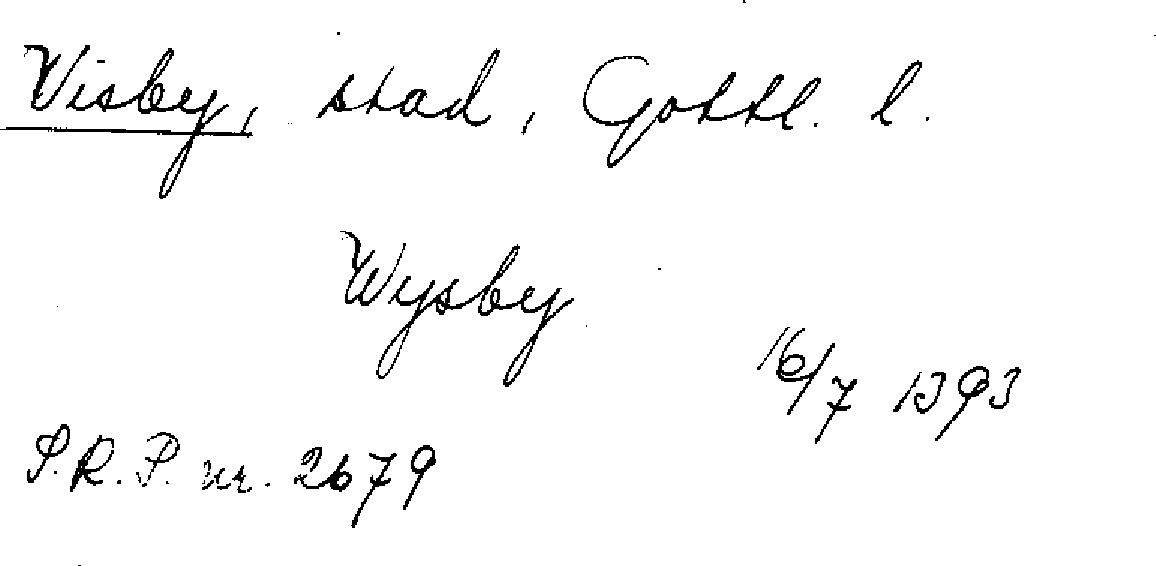 Visby, stad, Gottl. l.
Wysby
16/7 1393
P.R.P. nr. 2679